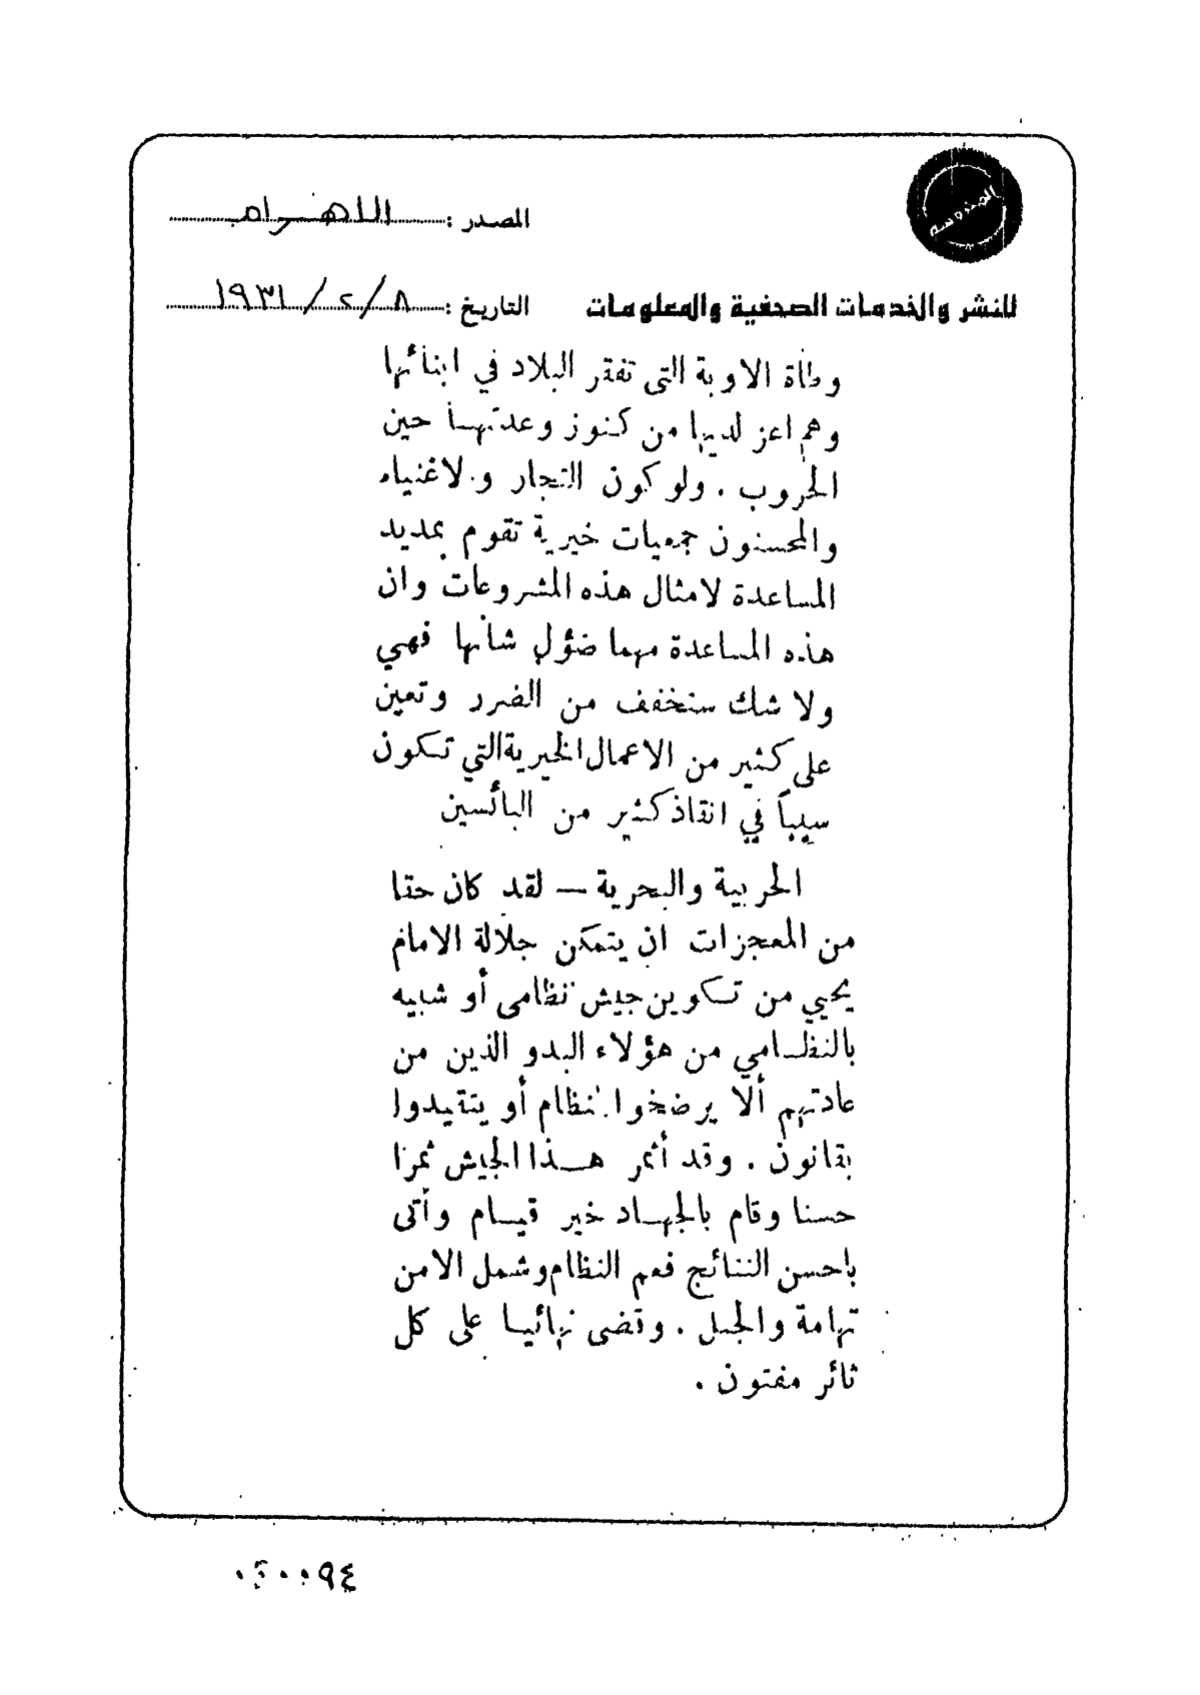 المحروسه
المصدر : الاهرام
للنشر والخدمات الصحفية والمعلومات
التاريخ : ٨/٢/١٩٣١
وطأة الاوبة التى تفقر البلاد في ابنائها
وهم اعز لديها من كنوز وعدتها حين
الحروب . ولو كون التجار والاغنياء
والمحسنون جمعيات خيرية تقوم بمديد
المساعدة لامثال هذه المشروعات وان
هذه المساعدة مهما ضؤل شأنها فهي
ولا شك ستخفف من الضرر وتعين
على كثير من الاعمال الخيرية التي تكون
سبباً في انقاذ كثير من البائسين
الحربية والبحرية — لقد كان حقا
من المعجزات ان يتمكن جلالة الامام
يحيي من تكوين جيش نظامى أو شبيه
بالنظامي من هؤلاء البدو الذين من
عادتهم ألا يرضخوا لنظام أو يتقيدوا
بقانون . وقد أثمر هذا الجيش ثمرا
حسنا وقام بالجهاد خير قيام وأتى
باحسن النتائج فعم النظام وشمل الامن
تهامة والجبل . وقضى نهائيا على كل
ثائر مفتون .